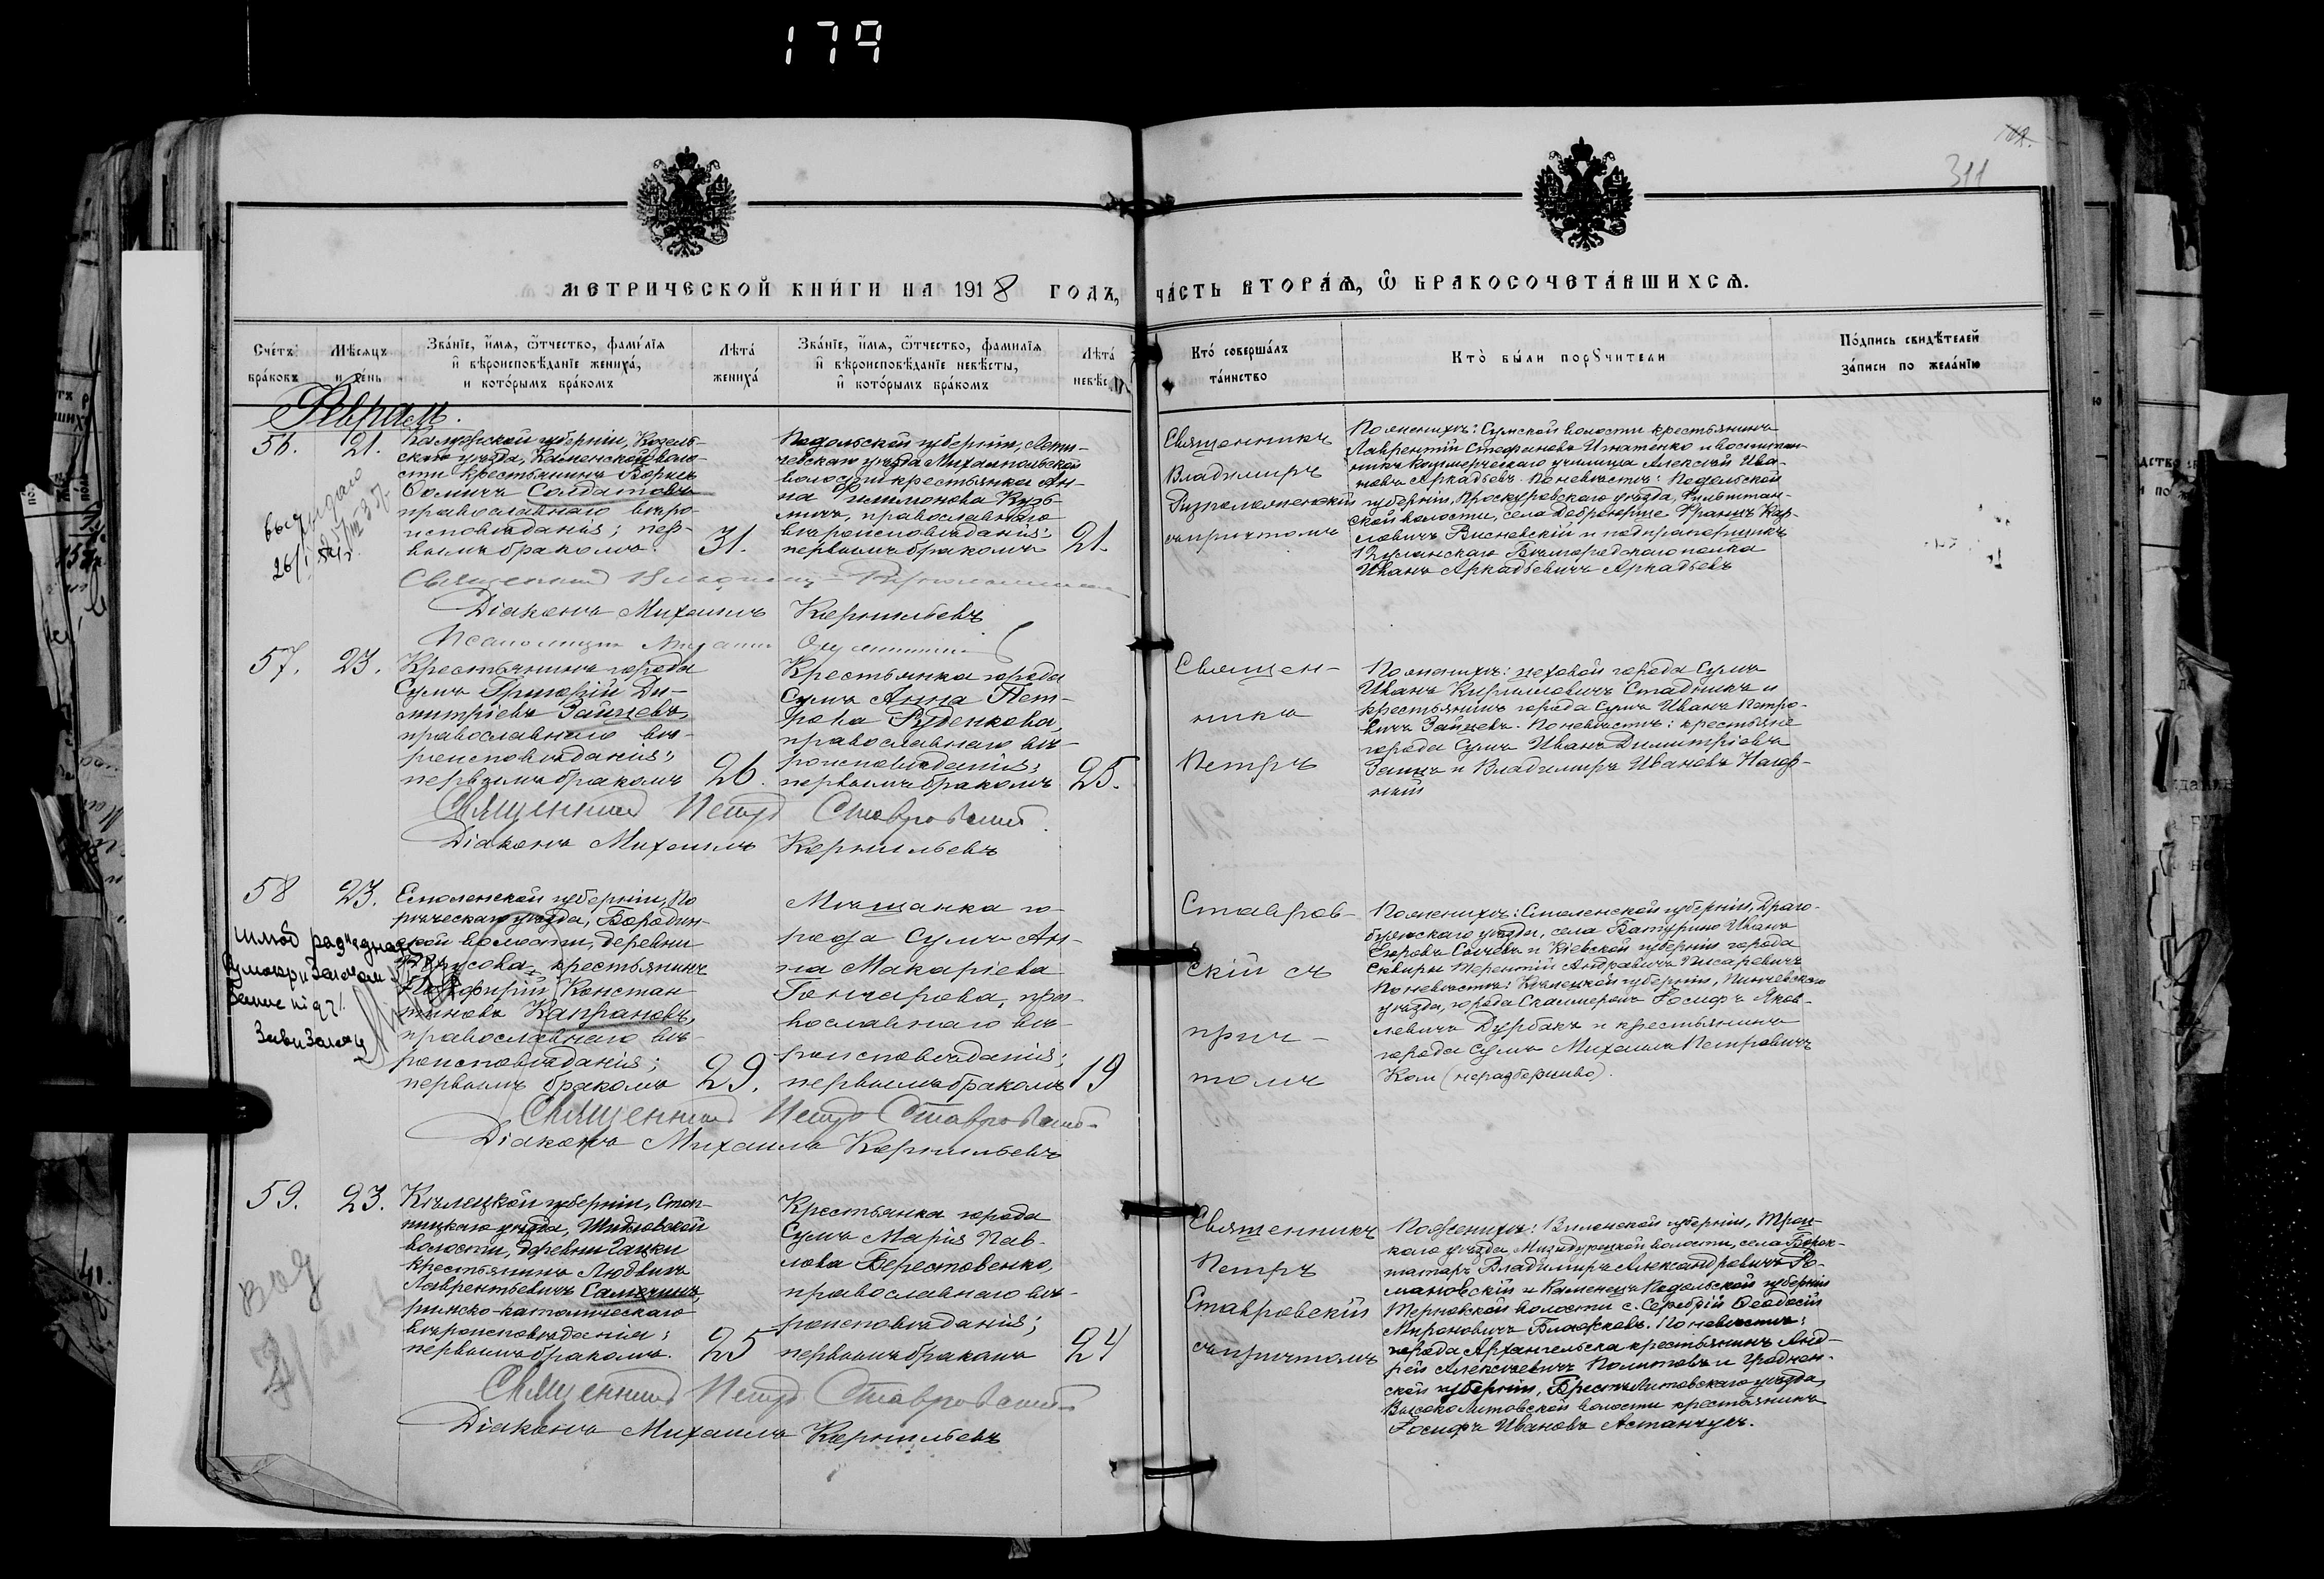 179
311
МЕТРИЧЕСКОЙ КНИГИ НА 1918 ГОДЪ,
ЧАСТЬ ВТОРАЯ, Ѿ БРАКОСОЧЕТАВШИХСЯ.
Счетъ браковъ
Мѣсяцъ и день
Званіе, имя, отчество, фамилія и вѣроисповѣданіе жениха, и которымъ бракомъ
Лѣта жениха
Званіе, имя, отчество, фамилія и вѣроисповѣданіе невѣсты, и которымъ бракомъ
Лѣта
Кто совершалъ таинство
Кто были поручители
Подпись свидѣтелей записи по желанію
Февраль.
56.
21.
Калужской губерніи, Козель-
скаго уѣзда, Каменской воло-
сти крестьянинъ Борисъ
Ѳомичъ Солдатовъ
православнаго вѣро-
исповѣданія; пер-
вымъ бракомъ.
31.
Подольской губерніи, Лети-
чевскаго уѣзда Михампольской
волости крестьянка Ан-
на Филимонова Кузь-
мичъ, православнаго
вѣроисповѣданія;
первымъ бракомъ
21.
Священникъ
Владимиръ
Ризположенскій
съ причтомъ
По женихѣ: Сумской волости крестьянинъ
Лаврентій Стефановъ Игнатенко и воспитан-
никъ Коммерческаго училища Алексѣй Ива-
новъ Аркадьевъ. По невѣстѣ: Подольской
губерніи, Проскуровскаго уѣзда,
ской волости, села Францъ Кар-
ловичъ Висневскій и подпрапорщикъ
12 уланскаго Бѣлгородскаго полка
Иванъ Аркадьевичъ Аркадьевъ
Священникъ Владимиръ Ризположенскій
Діаконъ Михаилъ Корнильевъ
Псаломщикъ
57.
23.
Крестьянинъ города
Сумъ Григорій Ди-
митріевъ Зайцевъ,
православнаго вѣ-
роисповѣданія;
первымъ бракомъ
26.
Крестьянка города
Сумъ Анна Пет-
рова Руденкова,
православнаго вѣ-
роисповѣданія;
первымъ бракомъ
25.
Священ-
никъ
Петръ
По женихѣ: цеховой города Сумъ
Иванъ Кирилловичъ Стадникъ и
крестьянинъ города Сумъ Иванъ Петро-
вичъ Зайцевъ. По невѣстѣ: крестьяне
города Сумъ Иванъ Димитріевъ
Заицъ и Владимиръ Ивановъ Нагор-
ный
Священникъ Петръ Ставровскій
Діаконъ Михаилъ Корнильевъ
58
23.
Смоленской губерніи, По
рѣчскаго уѣзда, Бородин-
ской волости, деревни
крестьянинъ
Порфирій Констан
тиновъ Капрановъ,
православнаго вѣ-
роисповѣданія;
первымъ бракомъ
29.
Мѣщанка го-
рода Сумъ Ан-
на Макаріева
Гончарова, пра-
вославнаго вѣ-
роисповѣданія;
первымъ бракомъ
19
Ставров-
скій съ
прич-
томъ
По женихѣ: Смоленской губерніи, Драго-
бужскаго уѣзда, села Батурино Иванъ
Егоровъ Сычевъ и Кіевской губерніи города
Сквиры Терентій Андреевичъ Писаревичъ
По невѣстѣ: Кѣлецкой губерніи, Пинчевскаго
уѣзда, города Іосифъ Яков-
левичъ Дурбакъ и крестьянинъ
города Сумъ Михаилъ Петровичъ
Ком (неразборчиво).
Священникъ Петръ Ставровскій
Діаконъ Михаилъ Корнильевъ
59.
23.
Кѣлецкой губерніи, Стоп-
ницкаго уѣзда, Шидловской
волости, деревни Гацки
крестьянинъ Людвигъ
Лаврентьевичъ
римско-католическаго
вѣроисповѣданія;
первымъ бракомъ.
25
Крестьянка города
Сумъ Марія Пав-
лова Берестовенко,
православнаго вѣ-
роисповѣданія;
первымъ бракомъ
24
Священникъ
Петръ
Ставровскій
съ причтомъ
По женихѣ: Виленской губерніи, Троц-
каго уѣзда, волости, села
Владимиръ Александровичъ Ро-
мановскій и Каменецъ Подольской губерніи
Терновской волости с. Серебрій Ѳеодосій
Мироновичъ По невѣстѣ:
города Архангельска крестьянинъ Анд-
рей Алексѣевичъ Политовъ и Гроднен-
ской губерніи, Брестъ Литовскаго уѣзда,
Высоко Литовской волости крестьянинъ
Іосифъ Ивановъ Астанчукъ.
Священникъ Петръ Ставровскій
Діаконъ Михаилъ Корнильевъ